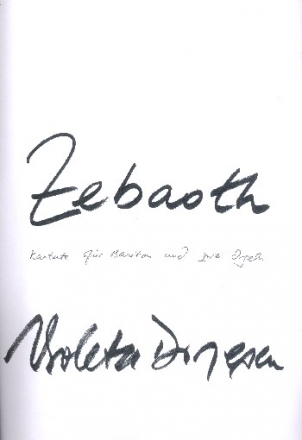 Zebaoth
Kantate für Bariton und zwei Orgeln
Violeta Dinescu